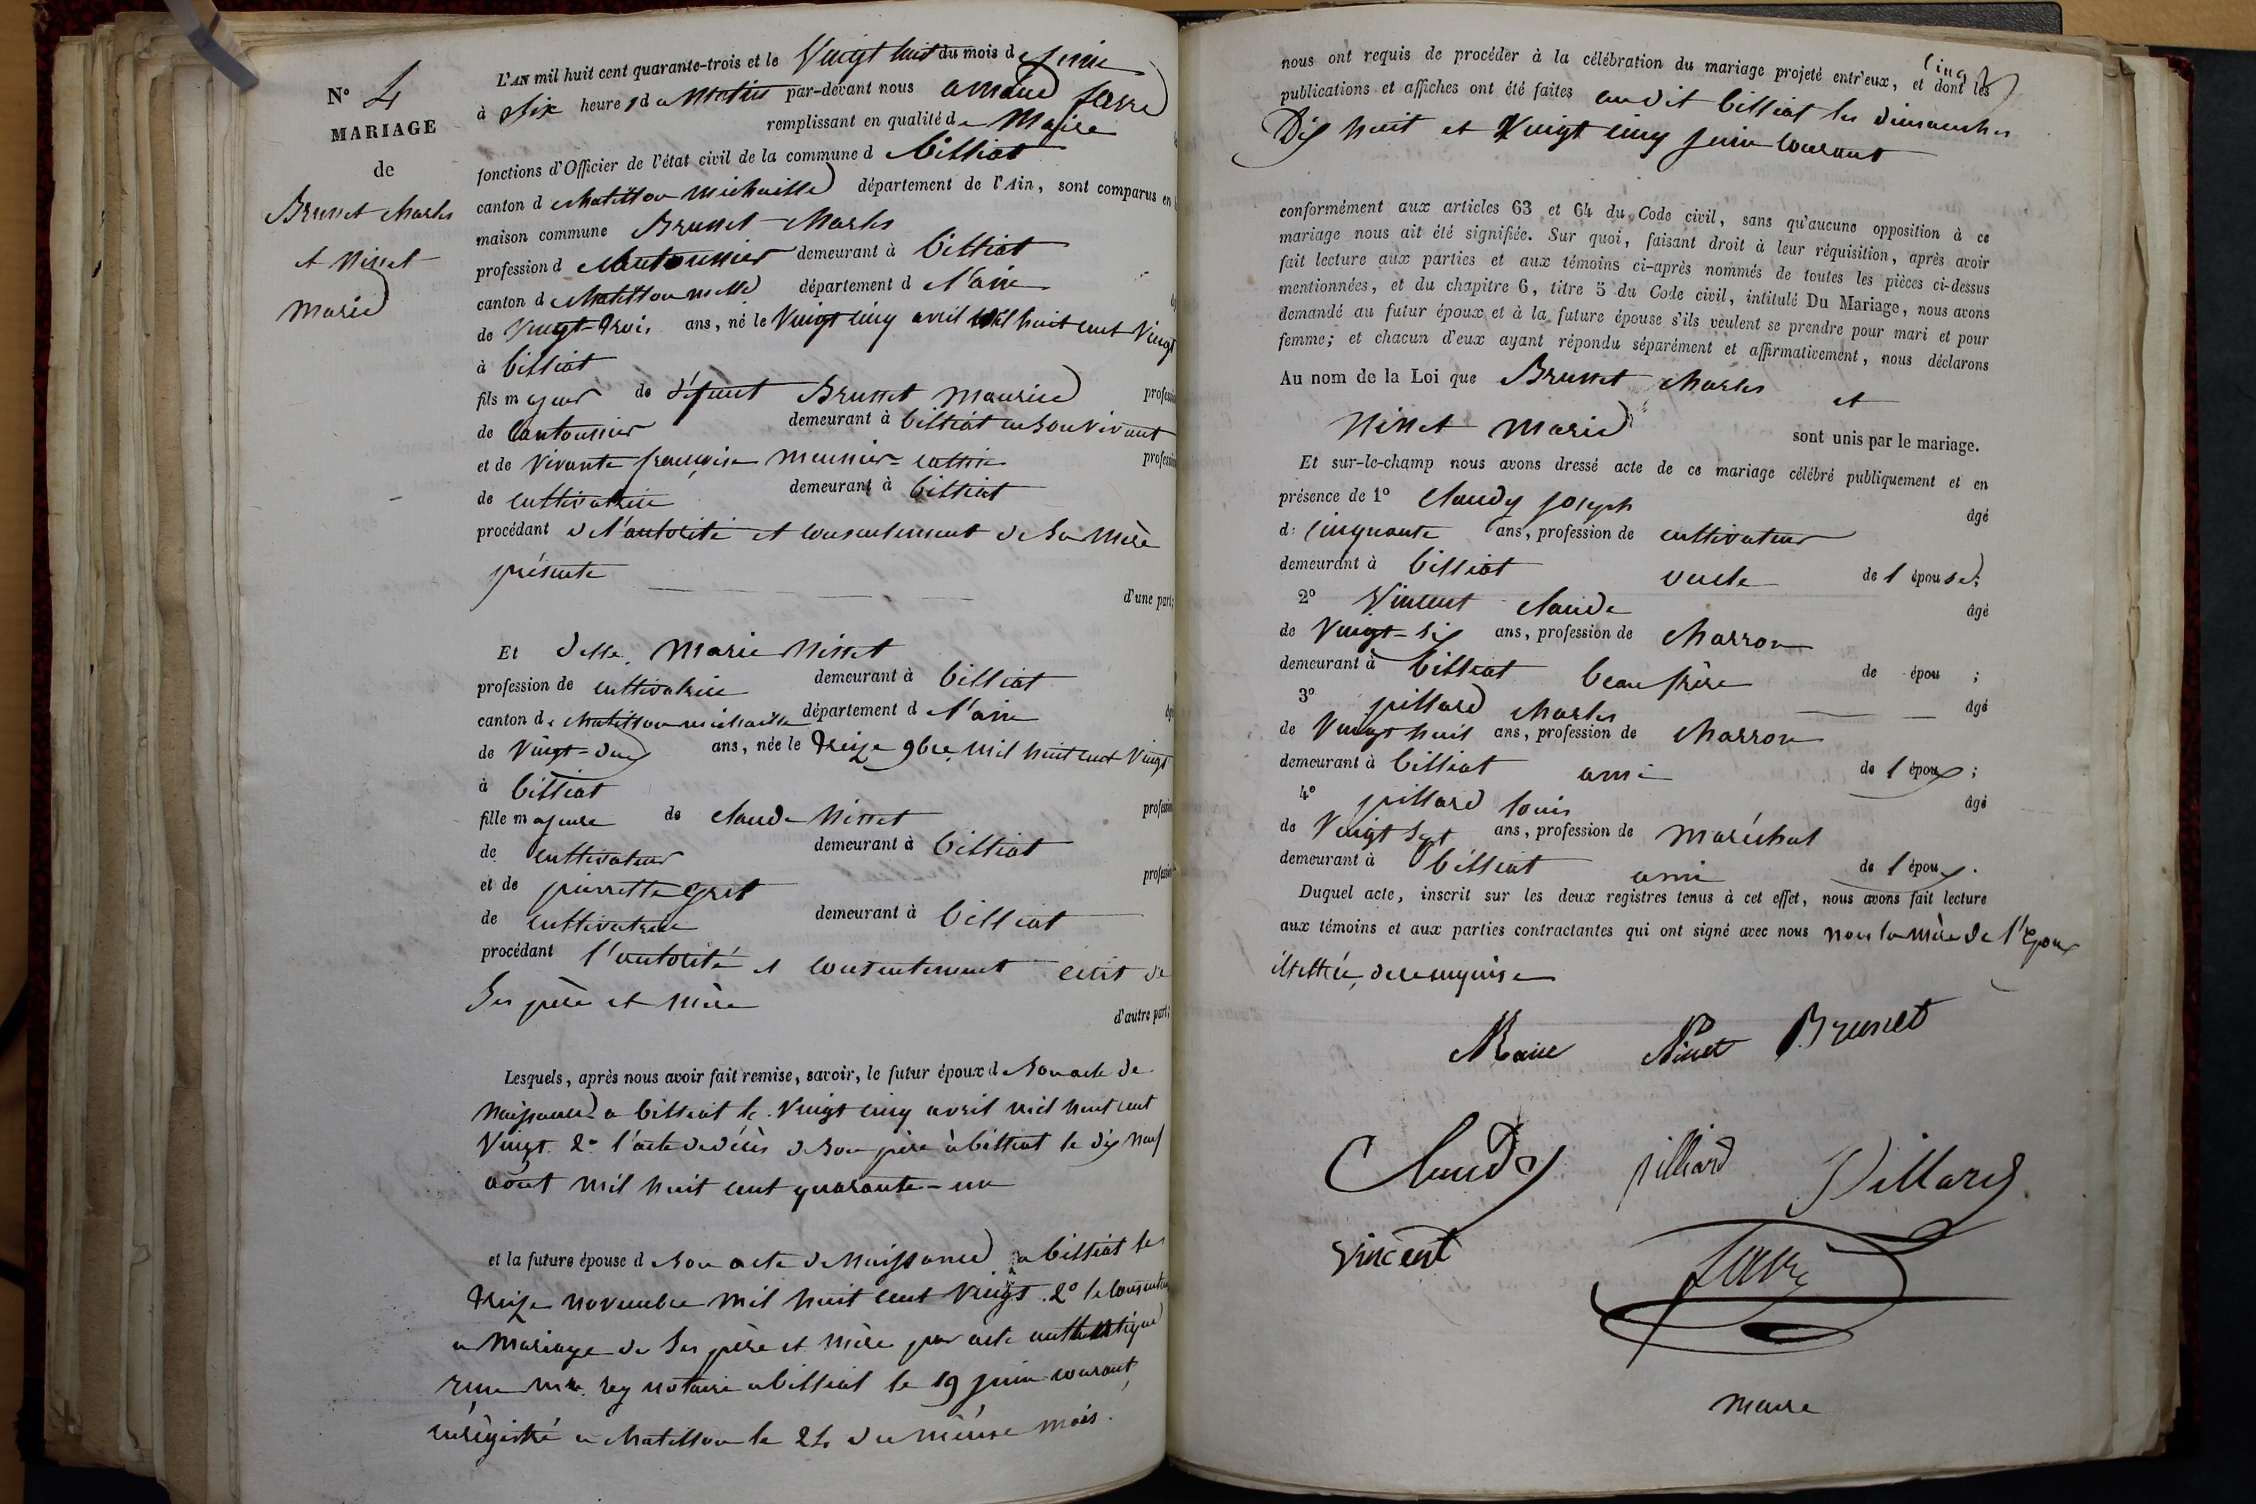 N° 4
MARIAGE
de
Brunet Charles
et Ninet
Marie
L'AN mil huit cent quarante-trois et le Vingt huit du mois de Juin
à Six heures du Matin par-devant nous amand favre
remplissant en qualité de Maire
fonctions d'Officier de l'état civil de la commune d billiat
canton d chatillon michaille département de l'Ain, sont comparus en
maison commune Brunet Charles
profession d cantonnier demeurant à billiat
canton d chatillon mlle département d l'ain
de Vingt-trois ans, né le Vingt cinq avril mil huit cent Vingt
à billiat
fils majeur de défunt Brunet Maurice profession
de Cantonnier demeurant à billiat en son vivant
et de vivante françoise meunier-cattin profession
de cultivatrice demeurant à billiat
procédant de l'autorité et consentement de Sa Mère
présente
d'une part;
Et delle. Marie Ninet
profession de cultivatrice demeurant à billiat
canton de chatillon michaille département d l'ain
de Vingt-deux ans, née le treize 9bre mil huit cent Vingt
à billiat
fille majeure de claude Ninet profession
de cultivateur demeurant à billiat
et de pierrette gret profession
de cultivatrice demeurant à billiat
procédant l'autorité et consentement écrit de
Ses père et mère
d'autre part;
Lesquels, après nous avoir fait remise, savoir, le futur époux d Son acte de
Naissance a billiat le Vingt cinq avril mil huit cent
Vingt. 2° l'acte de décès de Son père à billiat le dix neuf
août mil huit cent quarante-un
et la future épouse d Son acte de Naissance a billiat le
treize novembre mil huit cent Vingt. 2° le consentement
a Mariage de Ses père et mère par acte authentique
reçu Mre. rey notaire a billiat le 19 juin courant,
enrégistré a chatillon le 24 du même mois.
nous ont requis de procéder à la célébration du mariage projeté entr'eux, et dont les
publications et affiches ont été faites audit billiat les dimanches
Dix huit et Vingt cinq juin courant
conformément aux articles 63 et 64 du Code civil, sans qu'aucune opposition à ce
mariage nous ait été signifiée. Sur quoi, faisant droit à leur réquisition, après avoir
fait lecture aux parties et aux témoins ci-après nommés de toutes les pièces ci-dessus
mentionnées, et du chapitre 6, titre 5 du Code civil, intitulé Du Mariage, nous avons
demandé au futur époux et à la future épouse s'ils veulent se prendre pour mari et pour
femme; et chacun d'eux ayant répondu séparément et affirmativement, nous déclarons
Au nom de la Loi que Brunet Charles et
Ninet Marie sont unis par le mariage.
Et sur-le-champ nous avons dressé acte de ce mariage célébré publiquement et en
présence de 1° Claudy joseph âgé
de Cinquante ans, profession de cultivateur
demeurant à billiat oncle de l épouse;
2° Vincent claude âgé
de Vingt-six ans, profession de charron
demeurant à billiat beau frère de épou ;
3° pillard charles âgé
de Vingt huit ans, profession de charron
demeurant à billiat ami de l époux;
4° pillard louis âgé
de Vingt sept ans, profession de maréchal
demeurant à billiat ami de l époux.
Duquel acte, inscrit sur les deux registres tenus à cet effet, nous avons fait lecture
aux témoins et aux parties contractantes qui ont signé avec nous non la mère de l'époux
illettrée, de ce enquise
Marie Ninet Brunet
Claudy pilliard Pillard
Vincent favre
maire